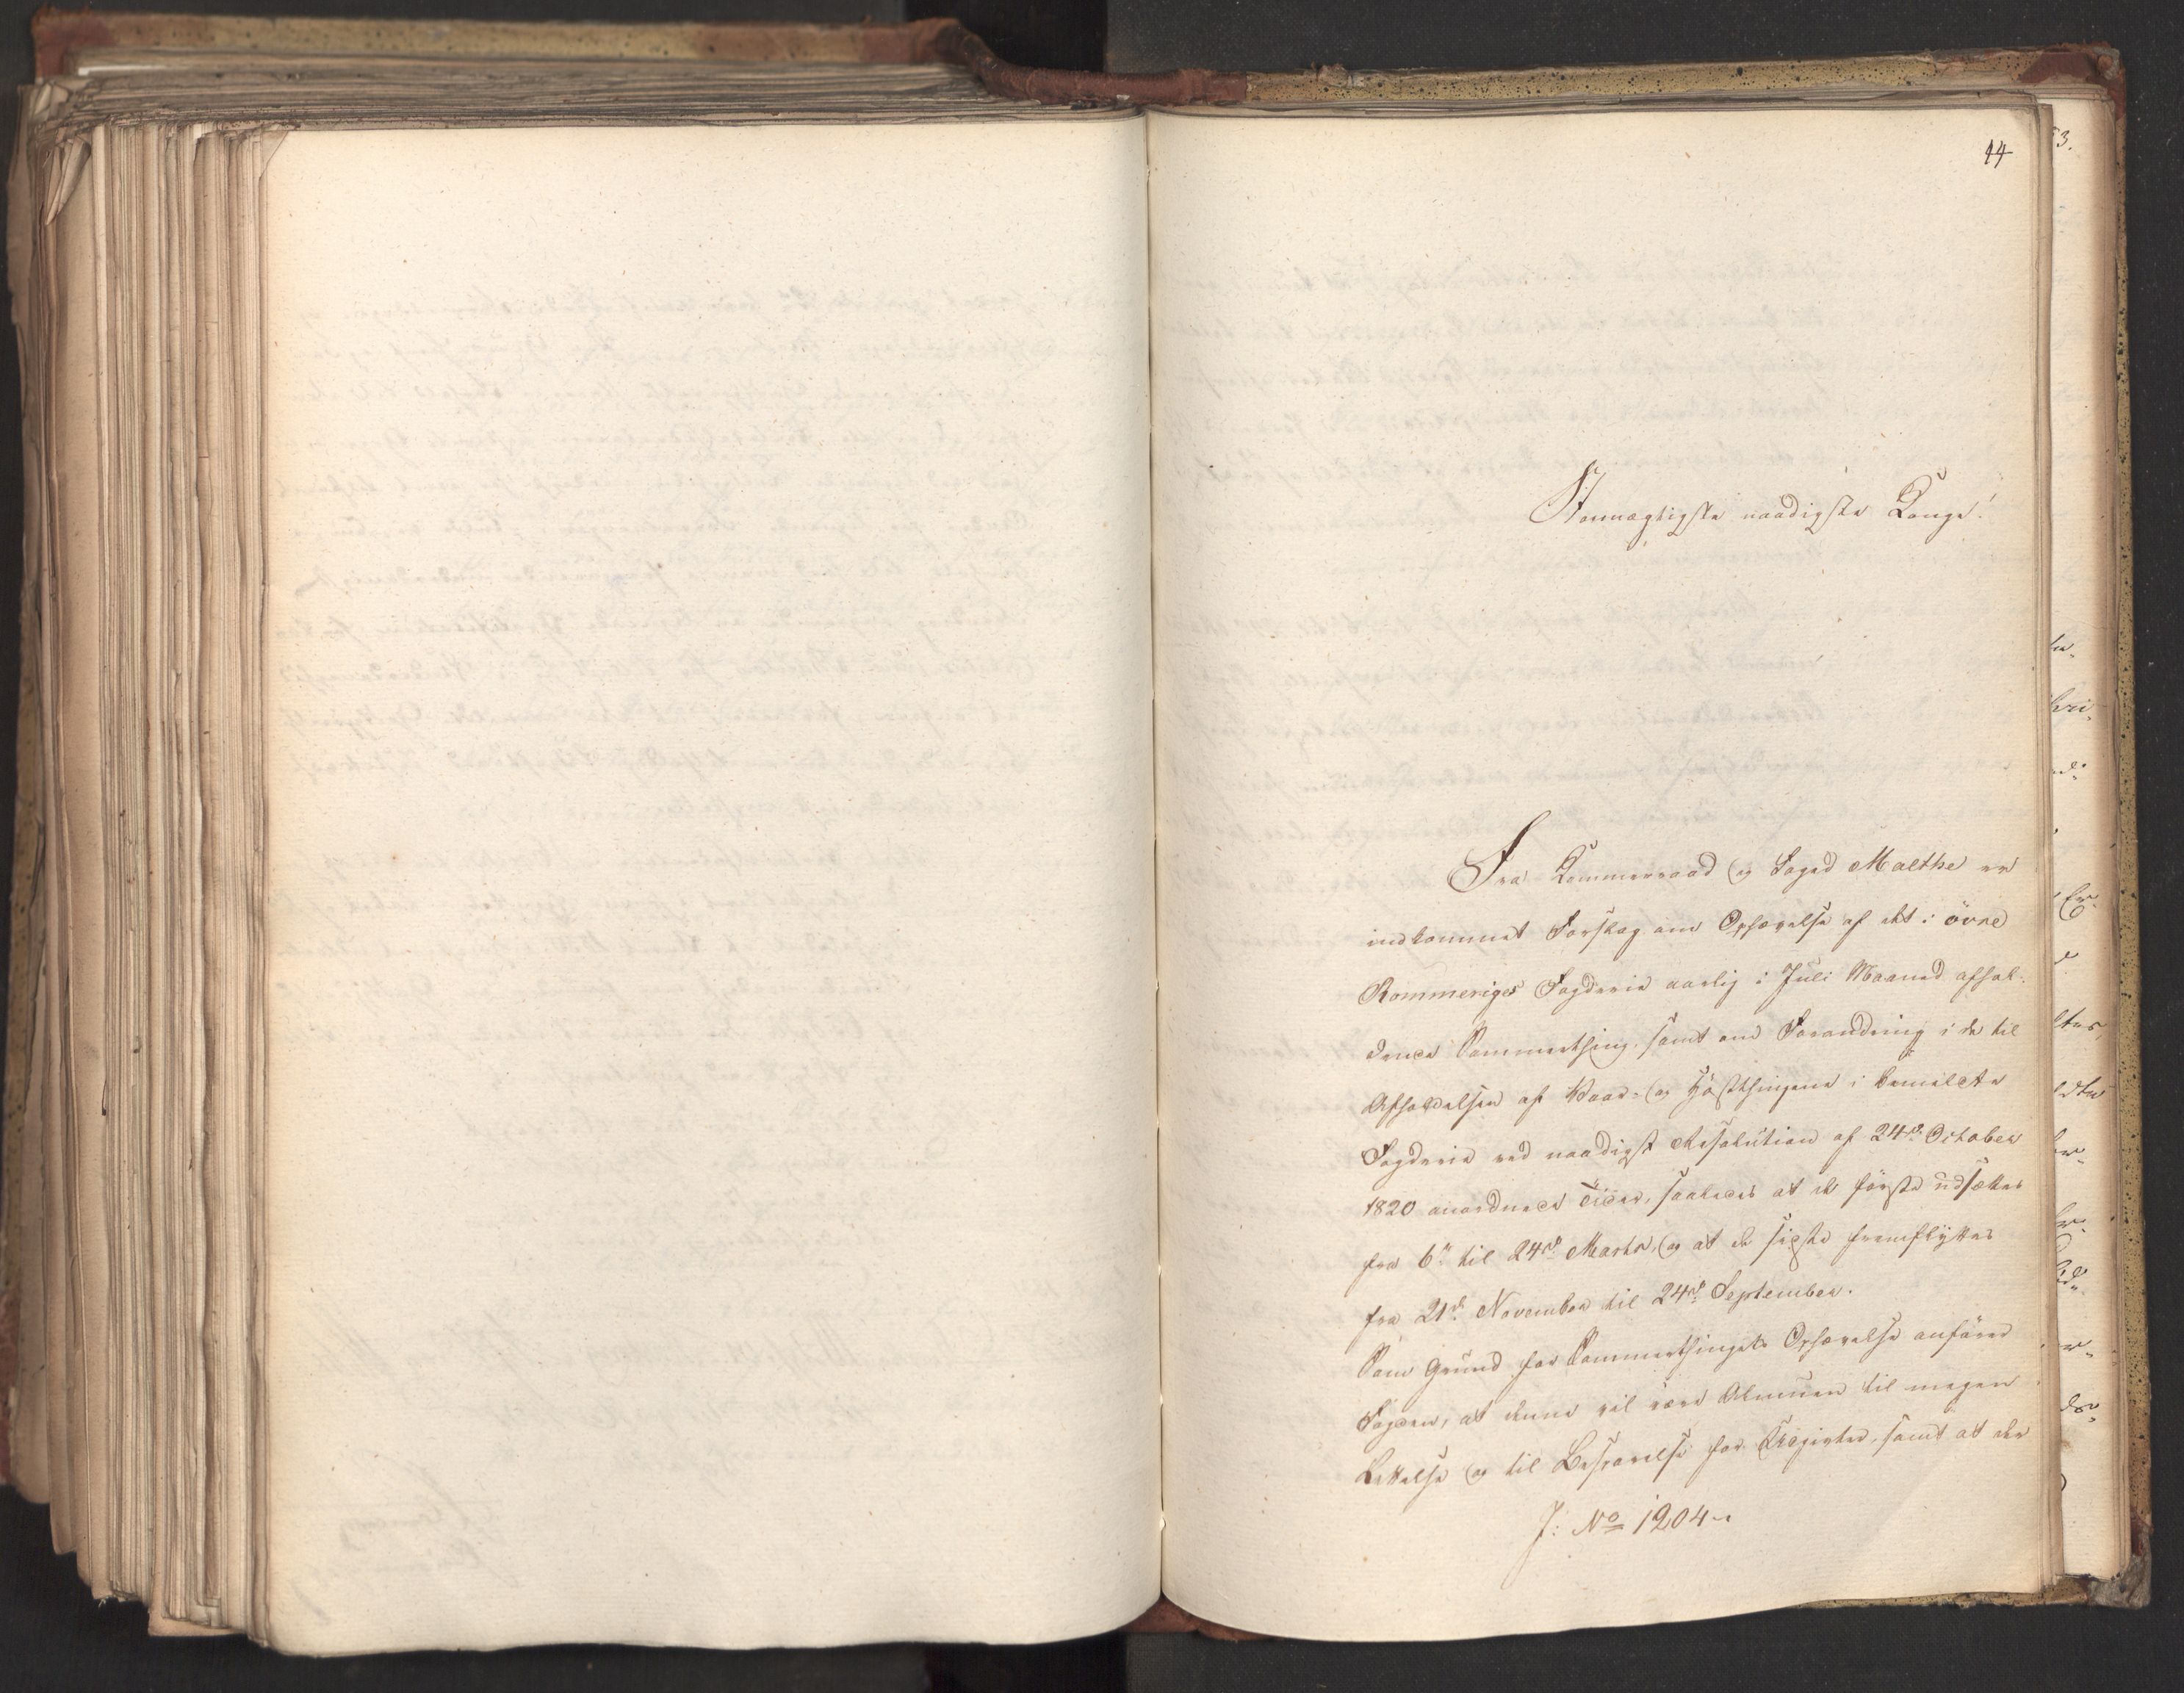 14
Stormægtigste naadigste Konge!
Fra Kammerraad og Foged Malthe er
indkommet Forslag om Ophævelse af det i övre
Rommeriges Fogderie aarlig i Juli Maaned afhol-
dende Sommerthing, samt om Forandring i de til
Afholdelsen af Vaar- og Hösthingene i bemeldte
Fogderie ved naadigst Resolution af 24de October
1820 anordnede Tider, saaledes at de förste udsættes
fra 6te til 24de Marts, og at de sidste fremflyttes
fra 21de November til 24de September.
Som Grund for Sommerthingets Ophævelse anförer
Fogden, at denne vil være Almuen til megen
Lettelse og til Besparelse for Udgifter, samt at der
J: No 1204.
53.